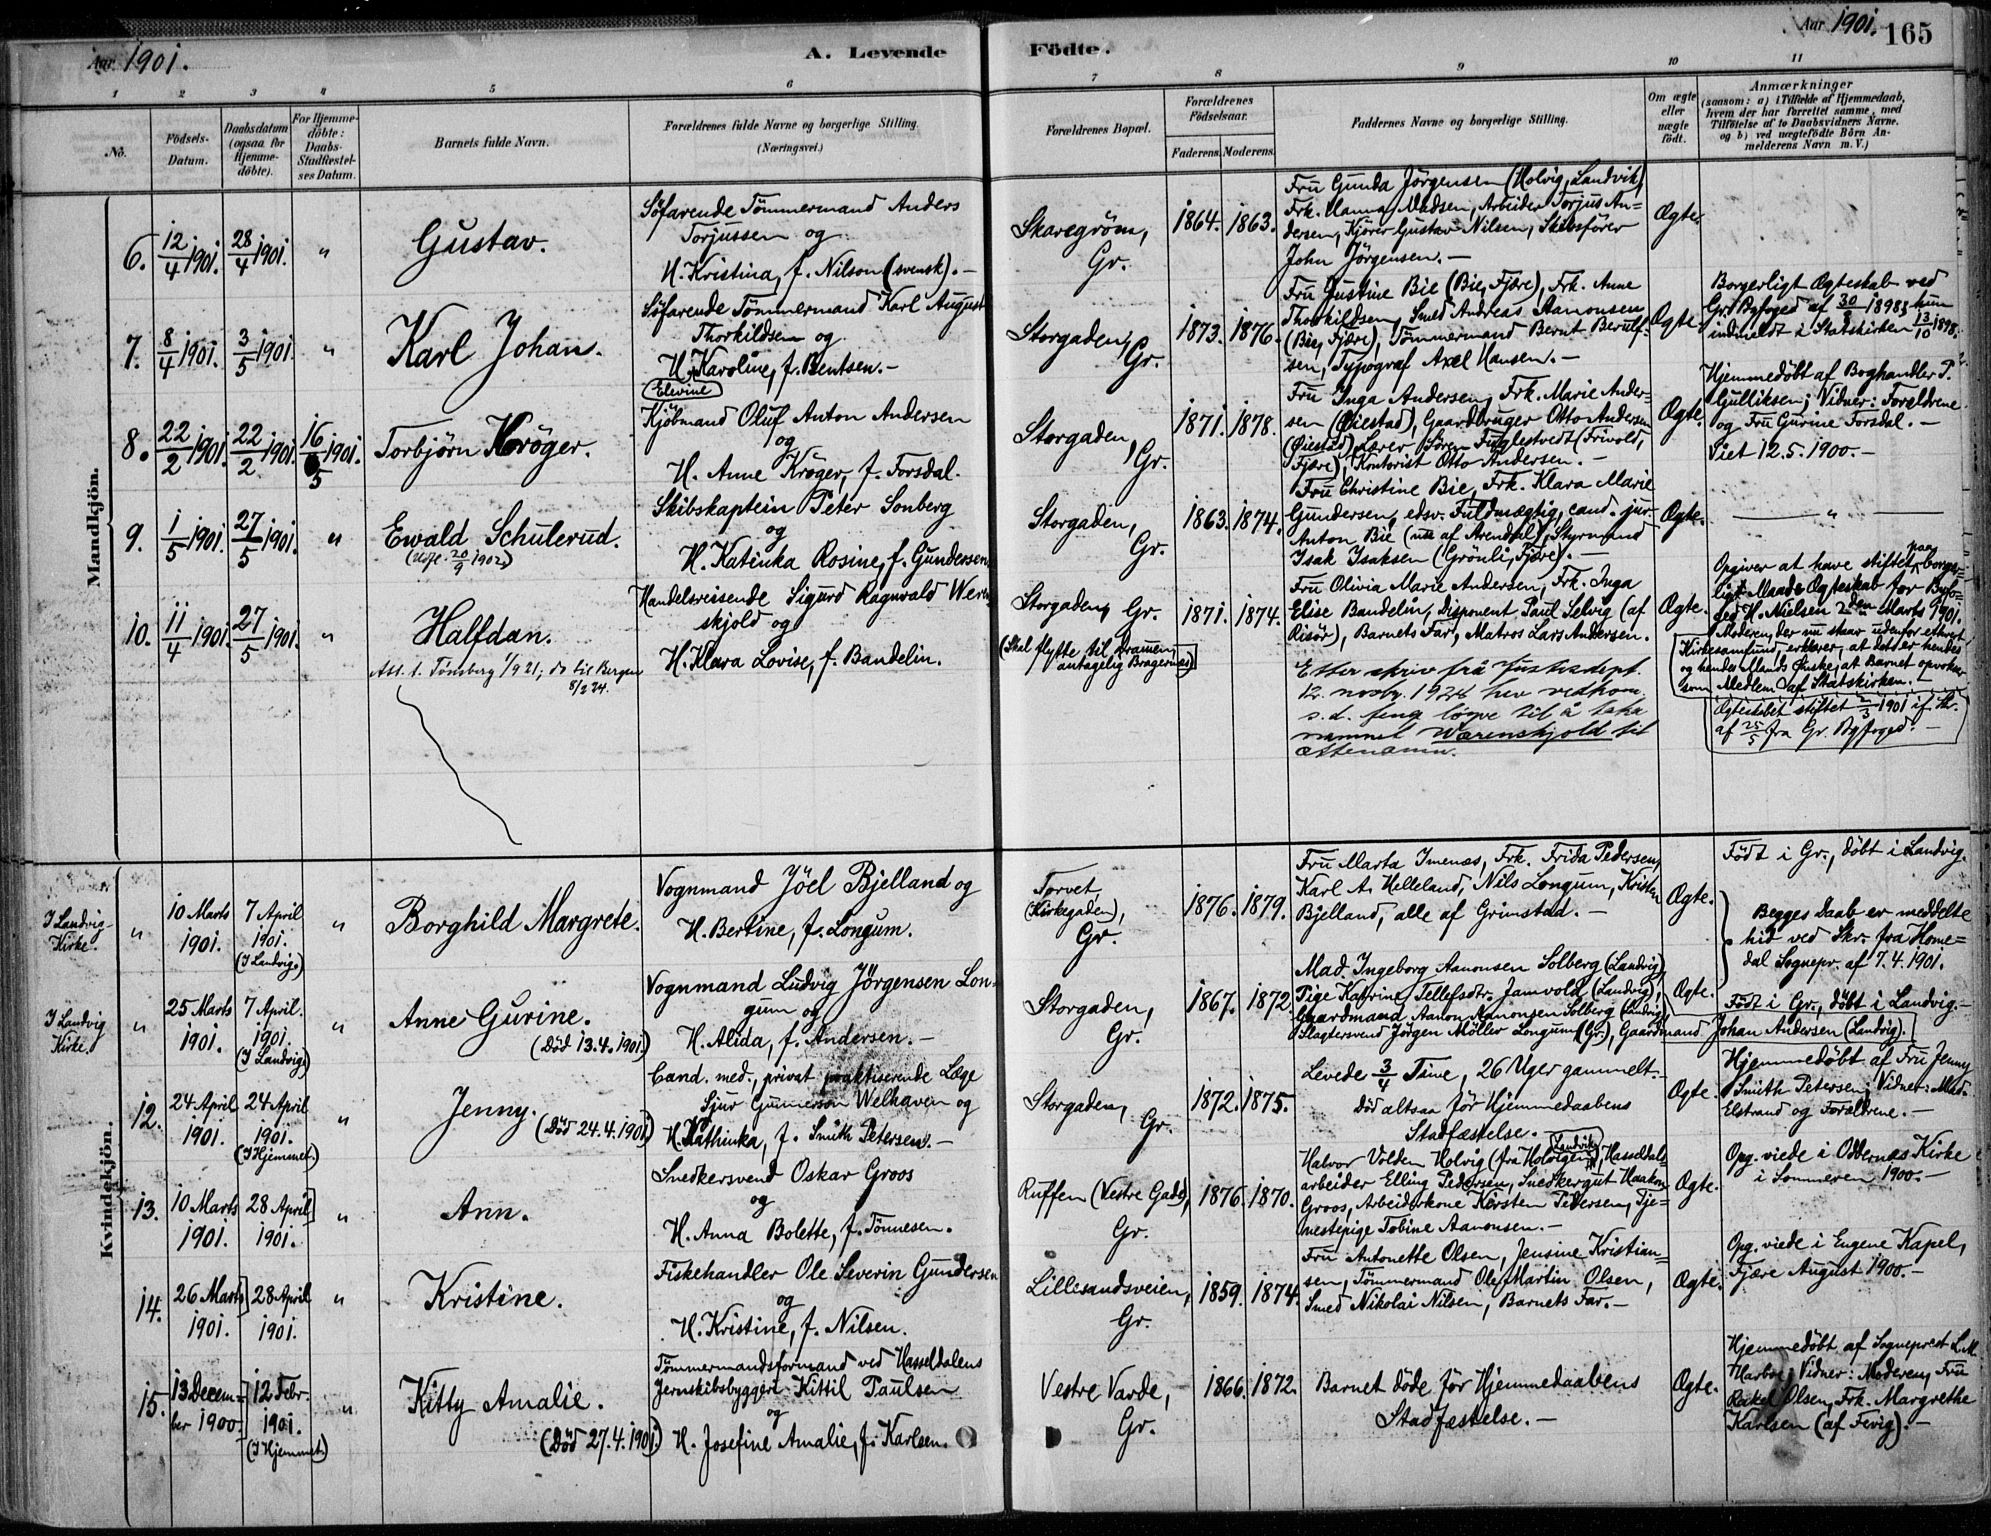 Aar 1901.
A. Levende
Födte.
Aar 1901. 165
1 2 3 4 5 6 7 8 9 10 11
No.
Födsels-
Datum.
Daabsdatum
(ogsaa for
Hjemme-
döbte).
For Hjemme-
döbte:
Daabs-
Stadfæstel-
ses Datum.
Barnets fulde Navn.
Forældrenes fulde Navne og borgerlige Stilling.
(Næringsvei.)
Forældrenes Bopæl.
Forældrenes
Födselsaar.
Faderens. Moderens.
Faddernes Navne og borgerlige Stilling.
Om ægte
eller
uægte
födt.
Anmærkninger
(saasom: a) i Tilfælde af Hjemmedaab,
hvem der har forrettet samme, med
Tilföielse af to Daabsvidners Navne,
og b) ved uægtefödte Börn An-
melderens Navn m. V.)
Mandkjön.
6. 12/4 1901. 28/4 1901. "
Gustav.
Söfarende Tömmermand Anders
Torjussen og
H. Kristina, f. Nilson (svensk). -
Skaregröm,
Gr.
1864. 1863.
Fru Gunda Jörgensen (Holvig, Landvik)
Frk. Hanna Madsen, Arbeider Torjus An-
dersen, Kjörer Gustav Nilsen, Skibsförer
John Jörgensen. -
Ægte.
7. 8/4 1901. 3/5 1901. "
Karl Johan.
Söfarende Tömmermand Karl August
Thorkildsen og
H. Karoline, f. Bentsen. -
Elevine
Storgaden,
Gr.
1873. 1876.
Fru Justine Bie (Bie, Fjære), Frk. Anne
Thorkildsen, Smed Andreas Aanonsen
(Bie, Fjære), Tömmermand Bernt Berulf-
sen, Typograf Axel Hansen. -
Ægte.
Borgerligt Ægteskab ved
Gr. Byfoged af 30/8 1898; hun
indmeldt i Statskirken 13/10 1898.
8. 22/2 1901. 22/2 1901. 16/5 1901.
Torbjörn Kröger.
Kjöbmand Oluf Anton Andersen
og
H. Anne Kröger, f. Forsdal.
Storgaden,
Gr.
1871. 1878.
Fru Inga Andersen, Frk. Marie Ander-
sen (Öiestad), Gaardbruger Otto Andersen
(Öiestad), Lærer Sören Fuglestvedt (Frivold,
Fjære), Kontorist Otto Andersen. -
Ægte.
Hjemmedöbt af Boghandler P.
Gulliksen; Vidner: Forældrene
og Fru Gurine Forsdal. -
Viet 12.5.1900. -
9. 1/5 1901. 27/5 1901. "
Ewald Schulerud.
20/9 1902)
Skibskaptein Peter Sonberg
og
H. Katinka Rosine, f. Gundersen.
Storgaden,
Gr.
1863. 1874.
Fru Christine Bie, Frk. Klara Marie
Gundersen, edsv. Fuldmægtig, cand. jur.
Anton Bie (nu af Arendal), Styrmand
Isak Isaksen (Grönli, Fjære). -
Ægte.
"
10. 11/4 1901. 27/5 1901. "
Halfdan.
Att. t. Tönsberg 1/9 21; do til Bergen
8/2 24.
Handelsreisende Sigurd Ragnvald Weren-
skjold og
H. Klara Lovise, f. Bandelin.
Storgaden, Gr.
(Skal flytte til Dramen,
antagelig Bragernes)
1871. 1874.
Fru Olivia Marie Andersen, Frk. Inga
Elise Bandelin, Disponent Paul Selvig (af
Risör), Barnets Far, Matros Lars Andersen.
Etter skriv frå justisdept.
12. novbr. 1924 hev vedkom.
s.d. feng löyve til å taka
namnet Wærenskjold til
ættenamn.
Ægte.
Opgiver at have stiftet paa borger-
ligt Maade Ægteskab for Byfo-
ged H. Nielsen 2den Marts 1901.
Moderen, der nu staar udenfor ethvert
Kirkesamfund, erklærer, at det er hendes
og hendes Mands Önske, at Barnet opvokser
som Medlem af Statskirken. -
Ægteskabet stiftet 2/3 1901 if. Skr.
af 25/5 fra Gr. Byfoged. -
Kvindekjön.
I Landvig
Kirke.
" 10 Marts
1901.
7 April
1901.
(I Landvig.)
"
Borghild Margrete.
Vognmand Jöel Bjelland og
H. Bertine, f. Longum.
Torvet,
(Kirkegaden),
Gr.
1876. 1879.
Fru Marta Imenæs, Frk. Frida Pedersen,
Karl A. Helleland, Nils Longum, Kristen
Bjelland, alle af Grimstad. -
Ægte.
Födt i Gr., döbt i Landvig.
Begges Daab er meddelte
hid ved Skr. fra Home-
dal Sognepr. af 7.4.1901.
I Landvig
Kirke.
" 25 Marts
1901.
7 April.
1901.
(I Landvig)
"
Anne Gurine.
(Död 13.4.1901.)
Vognmand Ludvig Jörgensen Lon-
gum og
H. Alida, f. Andersen. -
Storgaden,
Gr.
1867. 1872.
Mad. Ingeborg Aanonsen Solberg (Landvig)
Pige Katrine Tellefsdtr. Jamvold (Landvig),
Gaardmand Aanon Aanonsen Solberg (Landvig)
Slagtersvend Jörgen Möller Longum (Gr.), Gaardmand Johan Andersen (Landvig).
Ægte.
Födt i Gr., döbt i Landvig. -
12. 24 April
1901.
24 April
1901.
(I Hjemmet.)
"
Jenny.
(Död 24.4.1901)
Cand. med., privat praktiserende Læge
Sjur Gunnerson Welhaven og
H. Kathinka, f. Smith Petersen. -
Storgaden,
Gr.
1872. 1875.
Levede 3/4 Time, 26 Uger gammelt. -
Död altsaa för Hjemmedaabens
Stadfæstelse. -
Ægte.
Hjemmedöbt af Fru Jenny
Smith Petersen; Vidner: Mad.
Elstrand og Forældrene. -
13. 10 Marts
1901.
28 April
1901.
"
Ann.
Snedkersvend Oskar Groos
og
H. Anna Bolette, f. Tönnesen.
Ruffen (Vestre Gade),
Gr.
1876. 1870.
Halvor Volden Holvig (fra Holvigen, Landvik), Hasseldals-
arbeider Elling Pedersen, Snedkergut Haakon
Groos, Arbeiderkone Kirsten Pedersen, Tje-
nestepige Tobine Aanonsen. -
Ægte.
Opg. viede i Oddernes Kirke
i Sommeren 1900. -
14. 26 Marts
1901.
28 April
1901.
"
Kristine.
Fiskehandler Ole Severin Gundersen
og
H. Kristine, f. Nilsen.
Lillesandsveien,
Gr.
1859. 1874.
Fru Antonette Olsen, Jensine Kristian-
sen, Tömmermand Ole Martin Olsen,
Smed Nikolai Nilsen, Barnets Far. -
Ægte.
Opg. viede i Eugene Kapel,
Fjære August 1900. -
15. 13 Decem-
ber 1900.
12 Febr.
1901.
(I Hjemmet)
"
Kitty Amalie.
(Död 27.4.1901.)
Tömmermandsformand ved Hasseldalens
Jernskibsbyggeri Kittil Paulsen
og
H. Josefine Amalie, f. Karlsen.
Vestre Varde,
Gr.
1866. 1872.
Barnet döde för Hjemmedaabens
Stadfæstelse. -
Ægte.
Hjemmedöbt af Sogneprest L. M.
Harboe, Vidner: Moderen, Fru
Rakel Olsen, Frk. Margrethe
Karlsen (af Fevig). -